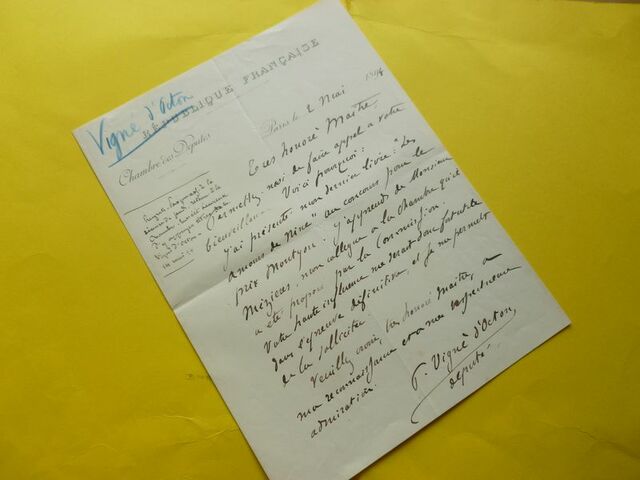 Vigné d'Octon
RÉPUBLIQUE FRANÇAISE
Chambre des Députés
Paris, le 2 Mai 1894
Très honoré Maître,
Permettez-moi de faire appel à votre
bienveillance. Voici pourquoi :
j'ai présenté mon dernier livre : Les
amours de Nine" au concours pour le
prix Montyon. J'apprends de Monsieur
Mézières, mon collègue à la Chambre qu'il
a été proposé par la Commission.
Votre haute influence me serait donc favorable
dans l'épreuve définitive, et je me permets
de la solliciter
Veuillez croire, très honoré Maître, à
ma reconnaissance et à ma respectueuse
admiration.
P. Vigné d'Octon,
député.